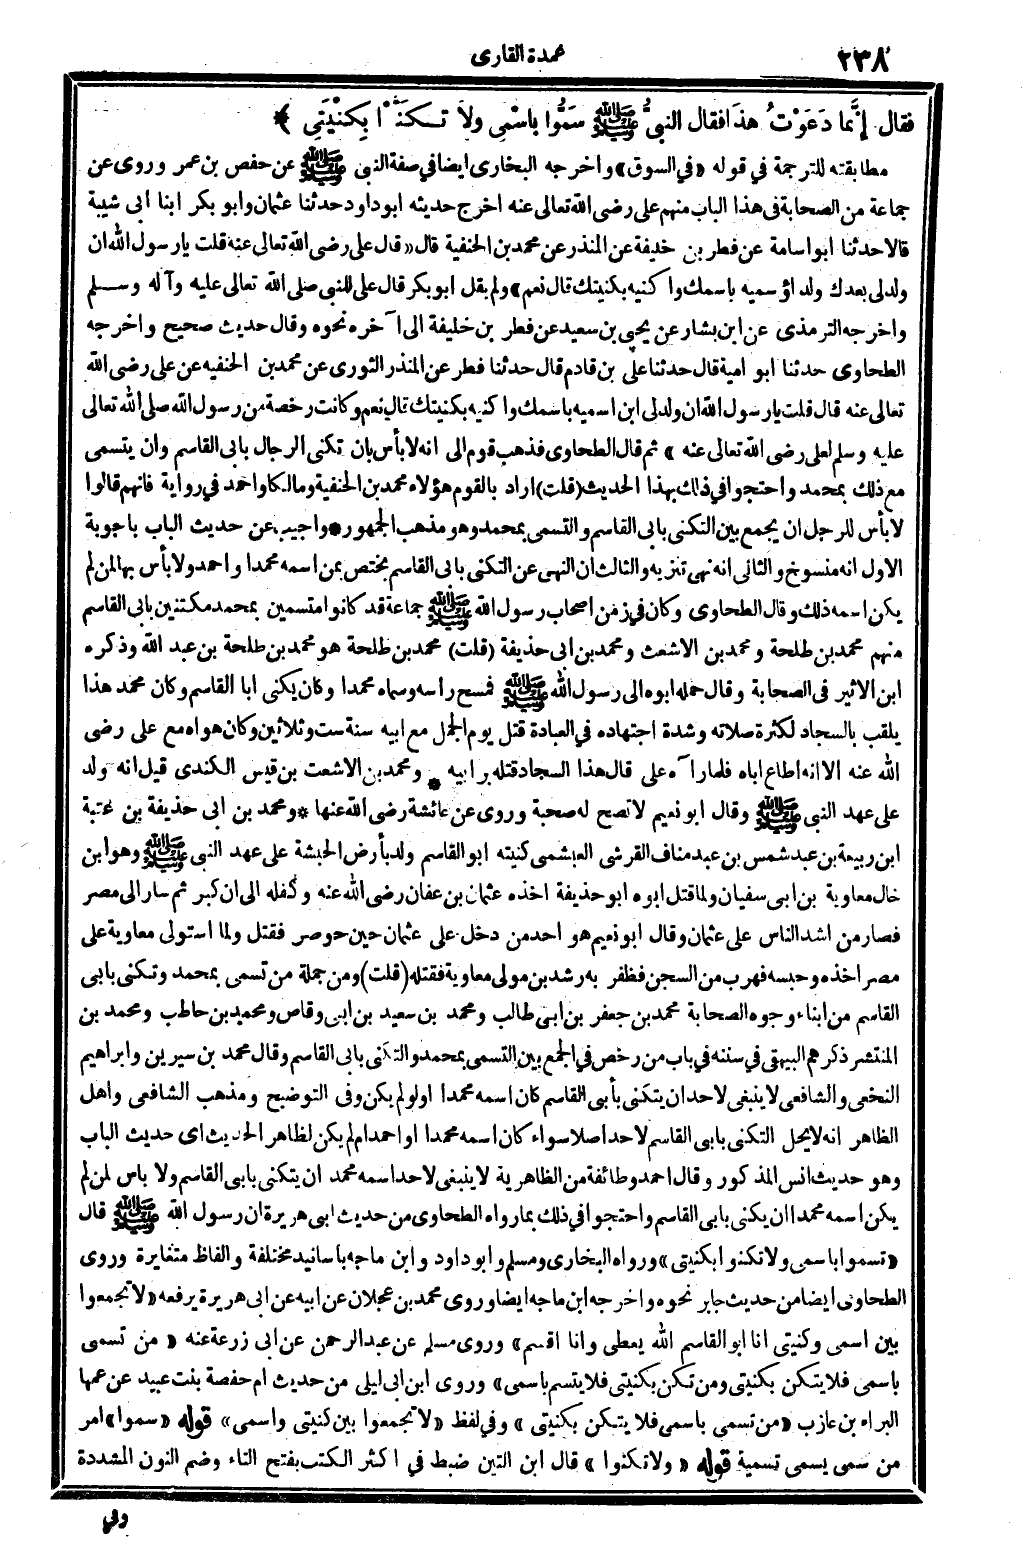 ٢٣٨
عمدة القارى
فقال إنَّما دَعَوْتُ هذَا فقال النبيُّ ﷺ سَمُّوا باسْمِي ولاَ تَكَنَّوْا بِكُنْيَتِي ﴾
مطابقته للترجمة في قوله «في السوق» واخرجه البخارى ايضا في صفة النبي ﷺ عن حفص بن عمر وروى عن
جماعة من الصحابة في هذا الباب منهم على رضى الله تعالى عنه اخرج حديثه ابو داود حدثنا عثمان وابو بكر ابنا ابى شيبة
قالا حدثنا ابو اسامة عن فطر بن خليفة عن المنذر عن محمد بن الحنفية قال «قال على رضى الله تعالى عنه قلت يارسول الله ان
ولد لى بعدك ولد اؤسميه باسمك واكنيه بكنيتك قال نعم» ولم يقل ابو بكر قال على للنبي صلى الله تعالى عليه وآله وسلم
واخرجه الترمذى عن ابن بشار عن يحيى بن سعيد عن فطر بن خليفة الى آخره نحوه وقال حديث صحيح واخرجه
الطحاوى حدثنا ابو امية قال حدثنا على بن قادم قال حدثنا فطر عن المنذر الثورى عن محمد بن الحنفيه عن على رضى الله
تعالى عنه قال قلت يارسول الله ان ولد لى ابن اسميه باسمك واكنيه بكنيتك قال نعم وكانت رخصة من رسول الله صلى الله تعالى
عليه وسلم لعلى رضى الله تعالى عنه» ثم قال الطحاوى فذهب قوم الى انه لا بأس بان تكنى الرجال بابى القاسم وان يتسمى
مع ذلك بمحمد واحتجوا في ذلك بهذا الحديث (قلت) اراد بالقوم هؤلاء محمد بن الحنفية ومالكا واحمد في رواية فانهم قالوا
لا بأس للرجل ان يجمع بين التكنى بابى القاسم والتسمى بمحمد وهو مذهب الجمهور * واجيب عن حديث الباب باجوبة
الاول انه منسوخ والثانى انه نهى تنزيه والثالث ان النهى عن التكنى بابى القاسم يختص بمن اسمه محمدا واحمد ولا بأس بها لمن لم
يكن اسمه ذلك وقال الطحاوى وكان في زمن اصحاب رسول الله ﷺ جماعة قد كانوا متسمين بمحمد مكتنين بابى القاسم
منهم محمد بن طلحة ومحمد بن الاشعث ومحمد بن ابى حذيفة (قلت) محمد بن طلحة هو محمد بن طلحة بن عبد الله وذكره
ابن الاثير فى الصحابة وقال حمله ابوه الى رسول الله ﷺ فمسح راسه وسماه محمدا وكان يكنى ابا القاسم وكان محمد هذا
يلقب بالسجاد لكثرة صلاته وشدة اجتهاده في العبادة قتل يوم الجمل مع ابيه سنة ست وثلاثين وكان هواه مع على رضى
الله عنه الا انه اطاع اباه فلما رآه على قال هذا السجاد قتله بر ابيه * ومحمد بن الاشعث بن قيس الكندى قيل انه ولد
على عهد النبى ﷺ وقال ابو نعيم لا تصح له صحبة وروى عن عائشة رضى الله عنها * ومحمد بن ابى حذيفة بن عتبة
ابن ربيعة بن عبد شمس بن عبد مناف القرشى العبشمى كنيته ابو القاسم ولد بأرض الحبشة على عهد النبى ﷺ وهو ابن
خال معاوية بن ابى سفيان ولما قتل ابوه ابو حذيفة اخذه عثمان بن عفان رضى الله عنه وكفله الى ان كبر ثم سار الى مصر
فصار من اشد الناس على عثمان وقال ابو نعيم هو احد من دخل على عثمان حين حوصر فقتل ولما استولى معاوية على
مصر اخذه وحبسه فهرب من السجن فظفر به رشد بن مولى معاوية فقتله (قلت) ومن جملة من تسمى بمحمد وتكنى بابى
القاسم من ابناء وجوه الصحابة محمد بن جعفر بن ابى طالب ومحمد بن سعيد بن ابى وقاص ومحمد بن حاطب ومحمد بن
المنتشر ذكرهم البيهقى في سننه في باب من رخص في الجمع بين التسمى بمحمد والتكنى بابى القاسم وقال محمد بن سيرين وابراهيم
النخعى والشافعى لا ينبغى لاحد ان يتكنى بأبى القاسم كان اسمه محمدا اولم يكن وفى التوضيح ومذهب الشافعى واهل
الظاهر انه لا يحل التكنى بابى القاسم لاحد اصلا سواء كان اسمه محمدا او احمد ام لم يكن لظاهر الحديث اى حديث الباب
وهو حديث انس المذكور وقال احمد وطائفة من الظاهرية لا ينبغى لاحد اسمه محمد ان يتكنى بابى القاسم ولا باس لمن لم
يكن اسمه محمدا ان يكنى بابى القاسم واحتجوا في ذلك بما رواه الطحاوى من حديث ابى هريرة ان رسول الله ﷺ قال
«تسموا باسمى ولا تكنوا بكنيتى» ورواه البخارى ومسلم وابو داود وابن ماجه باسانيد مختلفة والفاظ متغايرة وروى
الطحاوى ايضا من حديث جابر نحوه واخرجه ابن ماجه ايضا وروى محمد بن عجلان عن ابيه عن ابى هريرة يرفعه «لا تجمعوا
بين اسمى وكنيتى انا ابو القاسم الله يعطى وانا اقسم» وروى مسلم عن عبد الرحمن عن ابى زرعة عنه «من تسمى
باسمى فلا يتكن بكنيتى ومن تكن بكنيتى فلا يتسم باسمى» وروى ابن ابى ليلى من حديث ام حفصة بنت عبيد عن عمها
البراء بن عازب «من تسمى باسمى فلا يتكن بكنيتى» وفي لفظ «لا تجمعوا بين كنيتى واسمى» قوله «سموا» امر
من سمى يسمى تسمية قوله «ولا تكنوا» قال ابن التين ضبط في اكثر الكتب بفتح التاء وضم النون المشددة
وفي